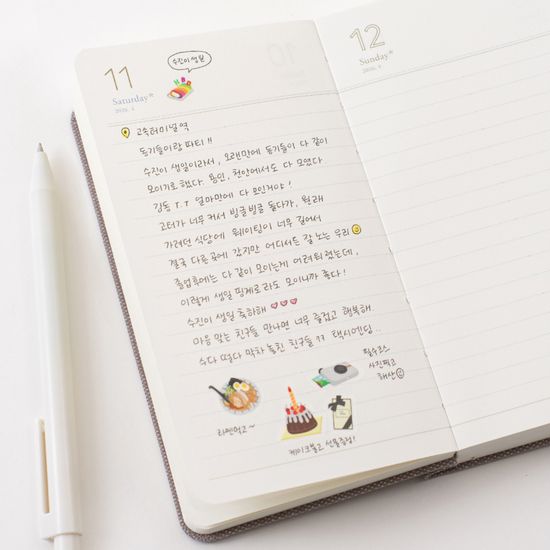 수진이 생일
11
Saturday*
12
Sunday*
고속터미널역
동기들이랑 파티!!
수진이 생일이라서, 오랜만에 동기들이 다 같이
모이기로 했다. 용인, 천안에서도 다 모였다
감동 T.T 얼마만에 다 모인거야!
고터가 너무 커서 빙글빙글 돌다가, 원래
가려던 식당에 웨이팅이 너무 길어서
결국 다른 곳에 갔지만 어디서든 잘 노는 우리
졸업후에는 다 같이 모이는게 어려워 졌는데,
이렇게 생일 핑계로라도 모이니까 좋다!
수진이 생일 축하해
마음 맞는 친구들 만나면 너무 즐겁고 행복해
수다 떨다 막차 놓친 친구들 ㅋㅋ 택시엔딩..
필수코스
사진찍고
해산
라멘먹고~
케이크불고 선물증정!